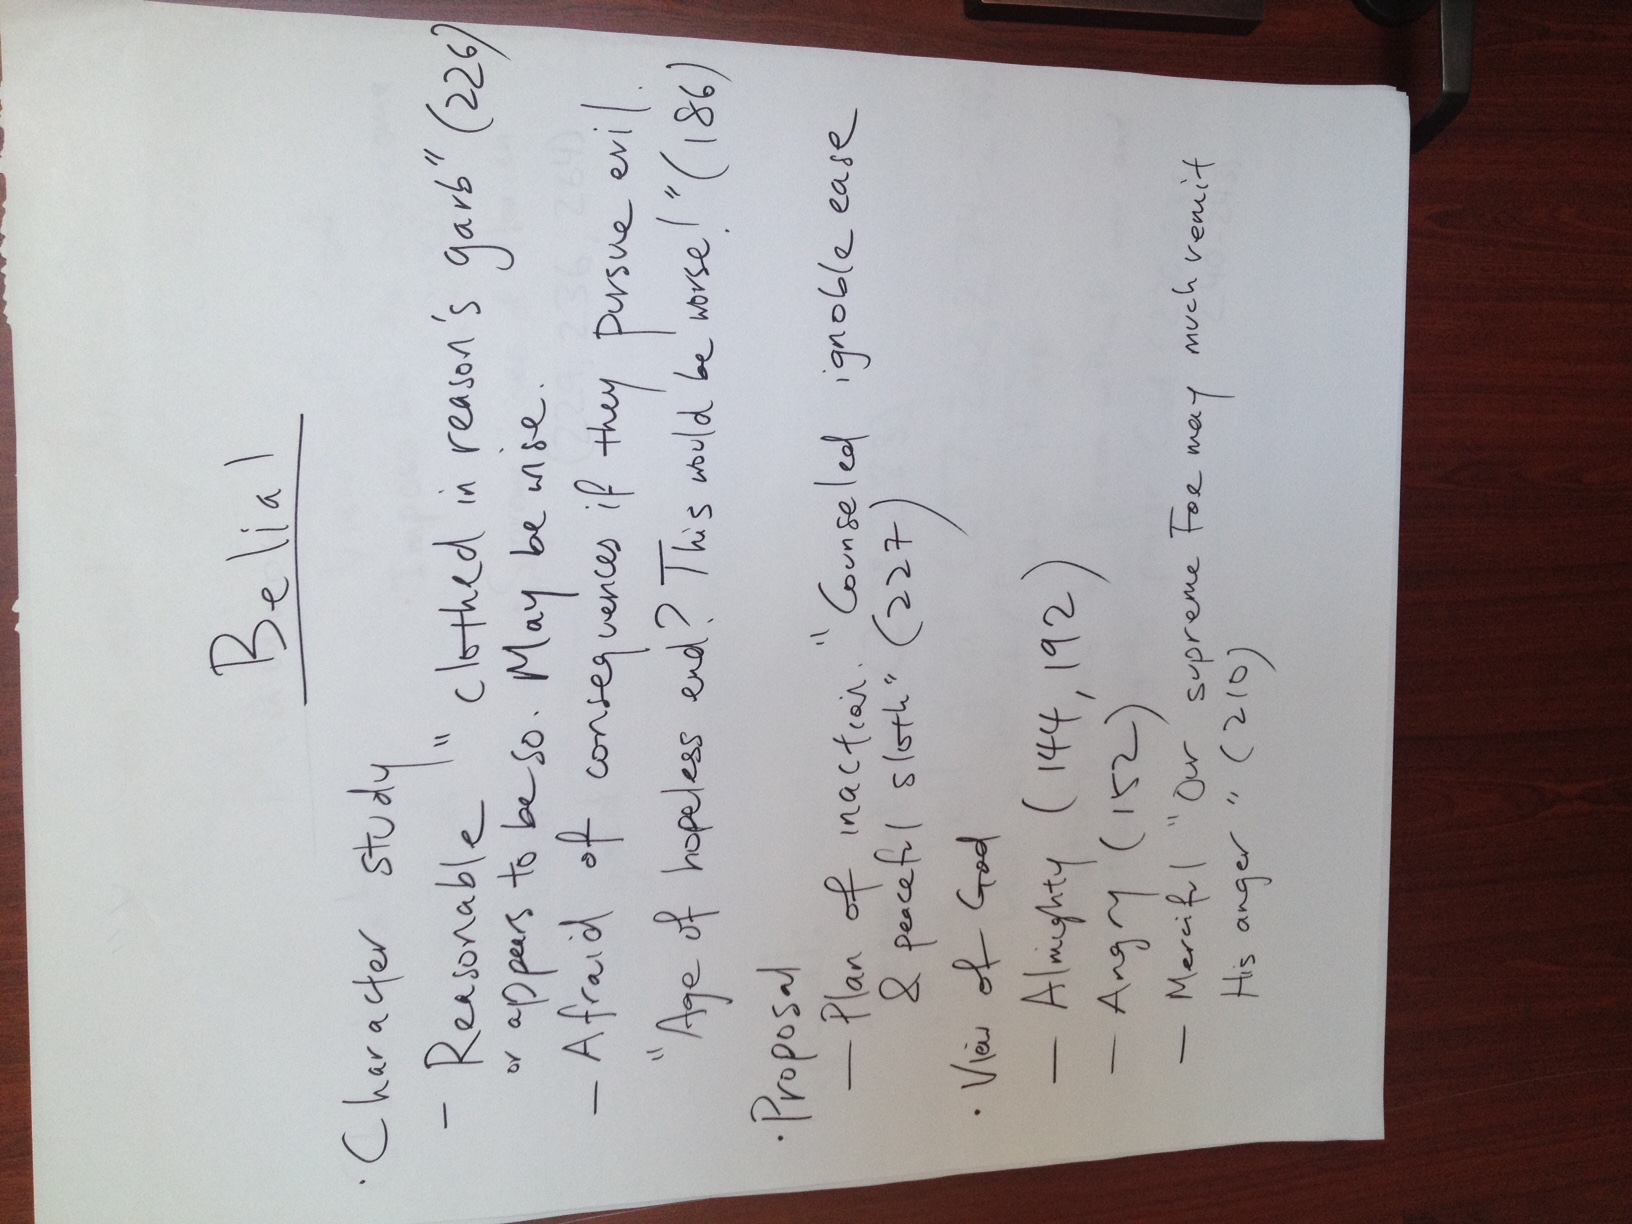 Belial
· Character study
- Reasonable " clothed in reason's garb" (226)
or appears to be so. May be wise.
- Afraid of consequences if they pursue evil.
"Age of hopeless end? This would be worse!" (186)
· Proposal
- Plan of inaction. "Counseled ignoble ease
& peaceful sloth" (227)
· View of God
- Almighty (144, 192)
- Angry (152)
- Merciful "Our supreme Foe may much remit
His anger" (210)